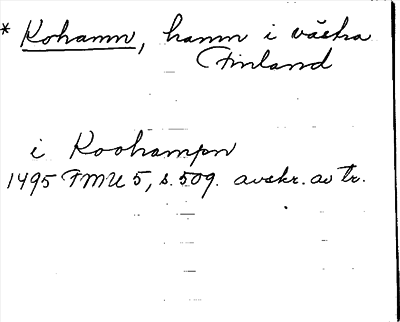 * Kohamn, hamn i västra
Finland
i Koohampn
1495 FMU 5, s. 509. avskr. av tr.